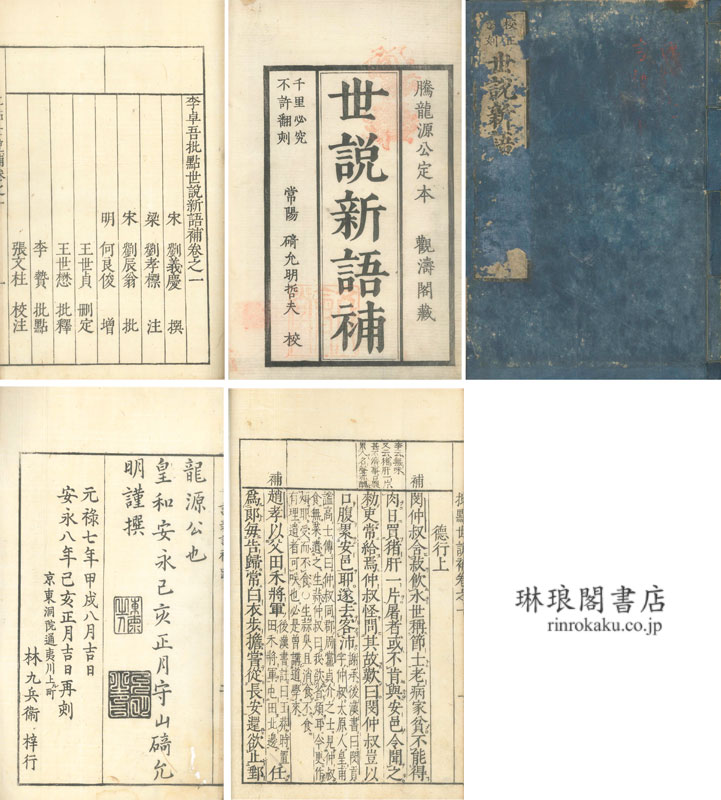 李卓吾批點世說新語補卷之一
宋 劉義慶 撰
梁 劉孝標 注
宋 劉辰翁 批
明 何良俊 增
王世貞 刪定
王世懋 批釋
李贄 批點
張文柱 校注
騰龍源公定本 觀濤閣藏
世說新語補
千里必究
不許翻刻
常陽 﨑允明哲夫 校
世說新語補
龍源公也
皇和安永己亥正月守山﨑允
明謹撰
元禄七年甲戌八月吉日
安永八年己亥正月吉日再刻
京東洞院通夷川上ル町
林九兵衛 梓行
德行上
補 閔仲叔含菽飲水世稱節士老病家貧不能得
肉日買豬肝一片屠者或不肯與安邑令聞之
勑吏常給焉仲叔怪問其故歎曰閔仲叔豈以
口腹累安邑耶遂去客沛
補 趙孝以父田禾將軍 任
爲郎每告歸常白衣步擔嘗從長安還欲止郵
琳琅閣書店
rinrokaku.co.jp